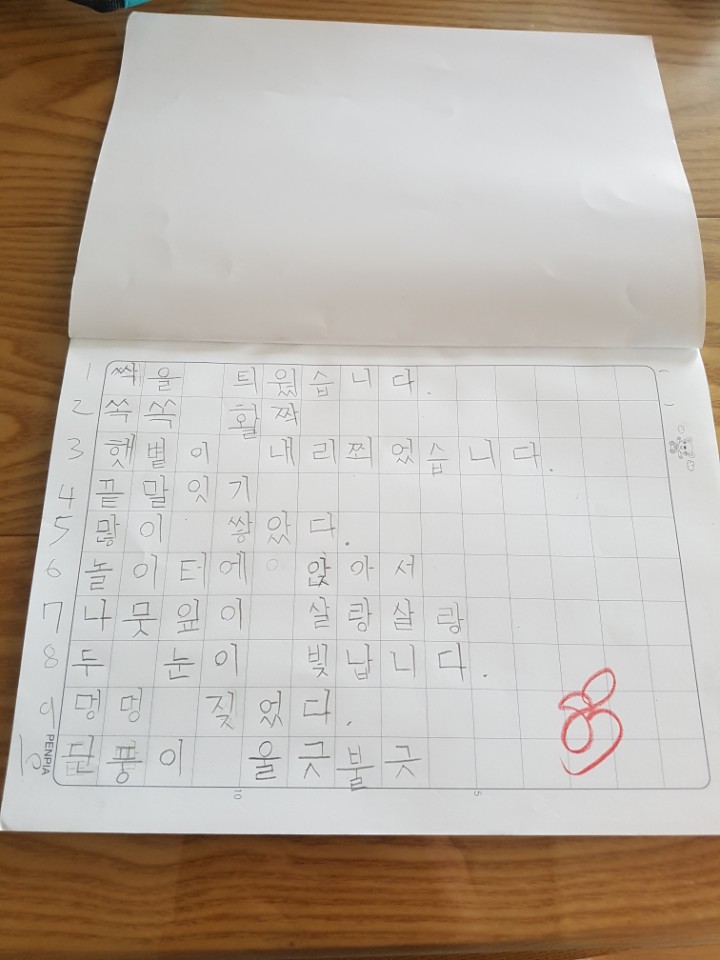 1 싹을 틔웠습니다.
2 쏙쏙 활짝
3 햇볕이 내리쬐었습니다.
4 끝말잇기
5 많이 쌓았다.
6 놀이터에 앉아서
7 나뭇잎이 살랑살랑
8 두 눈이 빛납니다.
9 멍멍 짖었다.
10 풍이 울긋불긋
PENPIA
10
5